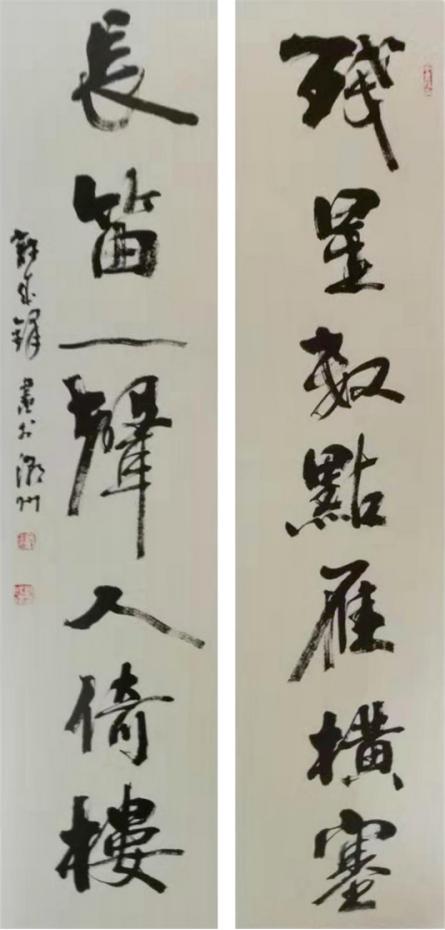 殘星數點雁橫塞
長笛一聲人倚樓
書於潮州